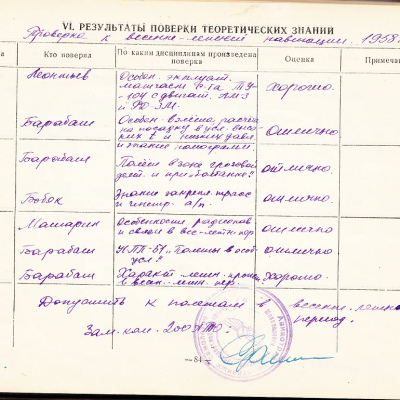 VI. РЕЗУЛЬТАТЫ ПОВЕРКИ ТЕОРЕТИЧЕСКИХ ЗНАНИЙ
Проверка к весенне-летней навигации. 1958
Кто поверял
По каким дисциплинам произведена поверка
Оценка
Примеча
Леонтьев
Особен. эксплуат.
ТУ-
104 с двигат. АМЗ
и РД-3М.
Хорошо.
Барабаш
Особен. взлета, расчёт
на посадку в усл. высо-
ких и низких давл.
и знание номограмм.
отлично
Барабаш
Полёт в зоне грозовой
деят. и при болтанке?
отлично.
Бобок
Знание закрепл. трасс
и инстр. а/п.
отлично.
Машарин
Особенности радионав
и связи в вес-летн. пер.
отлично
Барабаш
НПП-57 "Полеты в особ
усл"
отлично
Барабаш
Характ-
пер.
Хорошо.
Допустить к полетам в весенне-летний
период.
Зам. ком. 200 АТО.
— 84 —